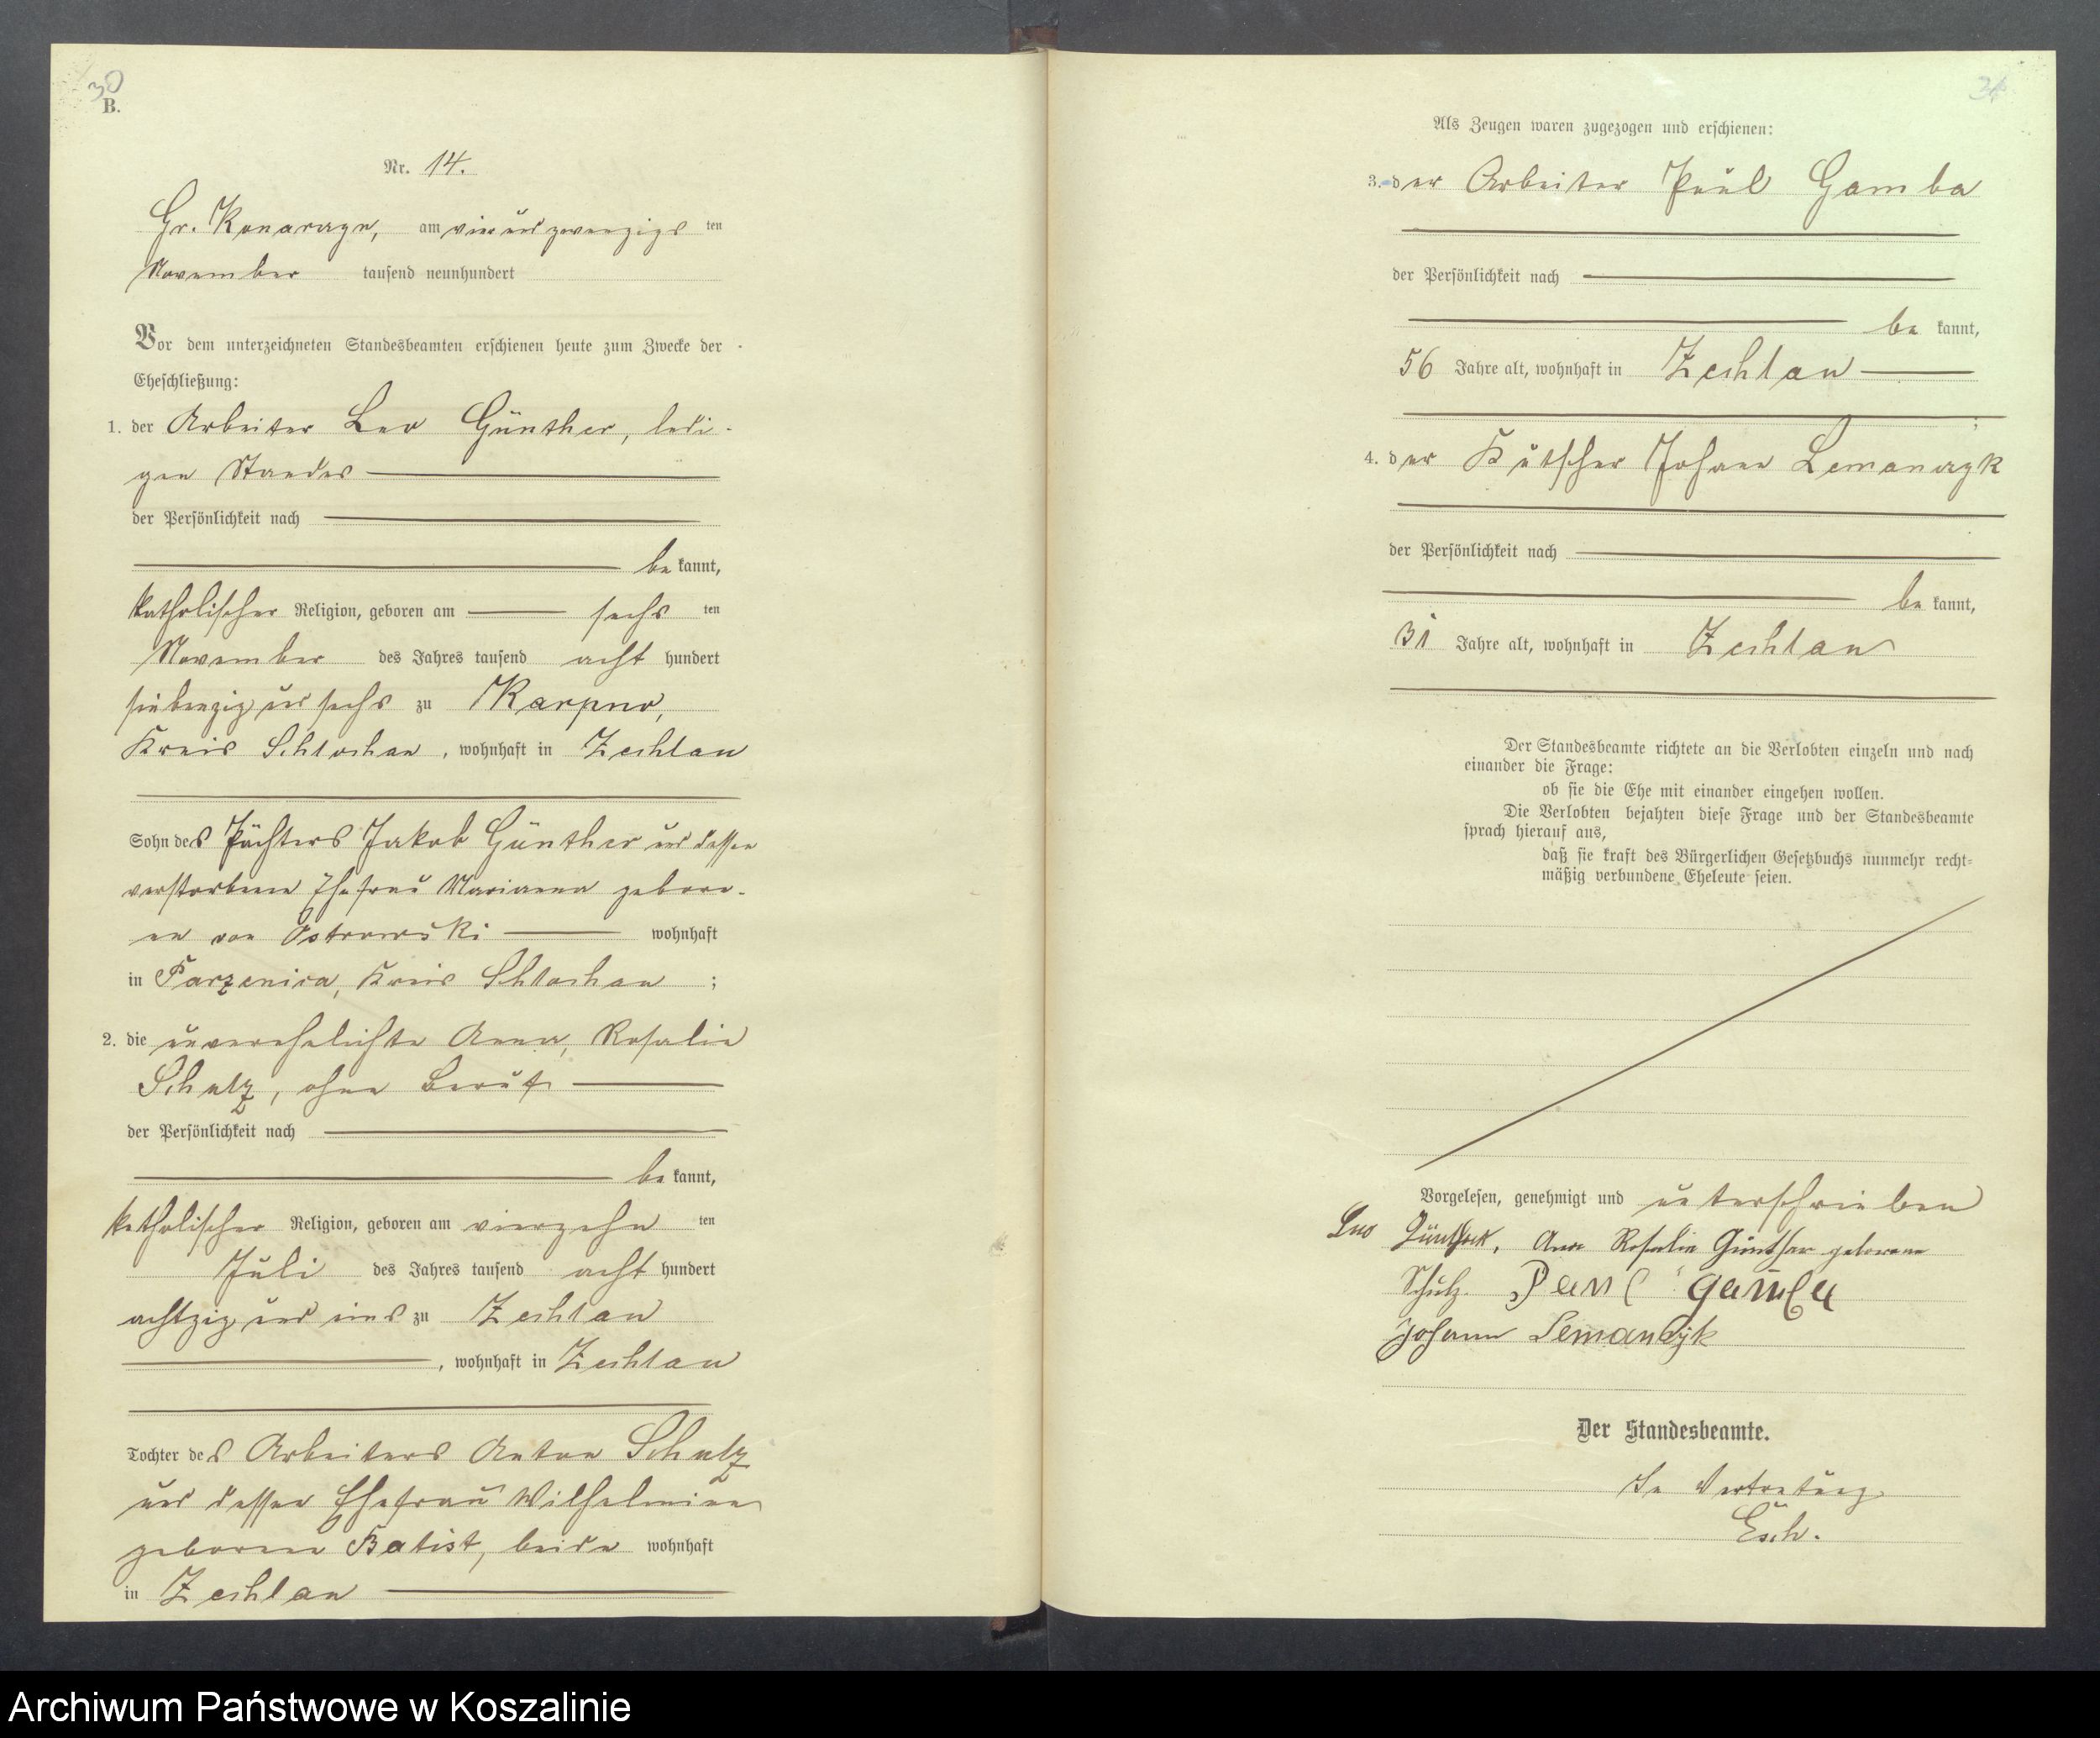 30
B.
Nr. 14.
Gr. Konarczyn, am vierundzwanzigsten
November tausend neunhundert
Vor dem unterzeichneten Standesbeamten erschienen heute zum Zwecke der
Eheschließung:
1. der Arbeiter Leo Günther, ledi-
gen Standes
der Persönlichkeit nach
be kannt,
katholischer Religion, geboren am sechs ten
November des Jahres tausend acht hundert
siebenzig und sechs zu Karpno,
Kreis Schlochau, wohnhaft in Zechlau
Sohn des Pächters Jakob Günther und dessen
verstorbene Ehefrau Marianna gebore-
ne von Ostrowski wohnhaft
in Parzenica, Kreis Schlochau ;
2. die unverehelichte Anna, Rosalie
Schulz, ohne Beruf
der Persönlichkeit nach
be kannt,
katholischer Religion, geboren am vierzehn ten
Juli des Jahres tausend acht hundert
achtzig und eins zu Zechlau
, wohnhaft in Zechlau
Tochter des Arbeiters Anton Schulz
und dessen Ehefrau Wilhelmine
geborene Batist, beide wohnhaft
in Zechlau
Als Zeugen waren zugezogen und erschienen:
3. der Arbeiter Paul Gamba
der Persönlichkeit nach
be kannt,
56 Jahre alt, wohnhaft in Zechlau
;
4. der Kutscher Johann Lemanczyk
der Persönlichkeit nach
be kannt,
31 Jahre alt, wohnhaft in Zechlau
Der Standesbeamte richtete an die Verlobten einzeln und nach
einander die Frage:
ob sie die Ehe mit einander eingehen wollen.
Die Verlobten bejahten diese Frage und der Standesbeamte
sprach hierauf aus,
daß sie kraft des Bürgerlichen Gesetzbuchs nunmehr recht=
mäßig verbundene Eheleute seien.
Vorgelesen, genehmigt und unterschrieben
Leo Günther, Anna Rosalie Günther geborene
Schulz. Paul Gamba
Johann Lemanczyk
Der Standesbeamte.
In Vertretung
Esch.
Archiwum Państwowe w Koszalinie